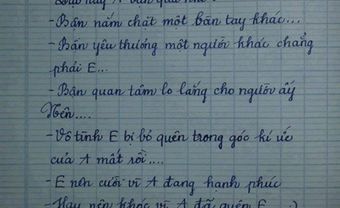 A bận
- Bận nắm chặt một bàn tay khác...
- Bận yêu thương một người khác chẳng
phải E...
- Bận quan tâm lo lắng cho người ấy
Nên....
- Vô tình E bị bỏ quên trong góc kí ức
của A mất rồi....
- E nên cười vì A đang hạnh phúc
- Hay nên khóc vì A đã quên E